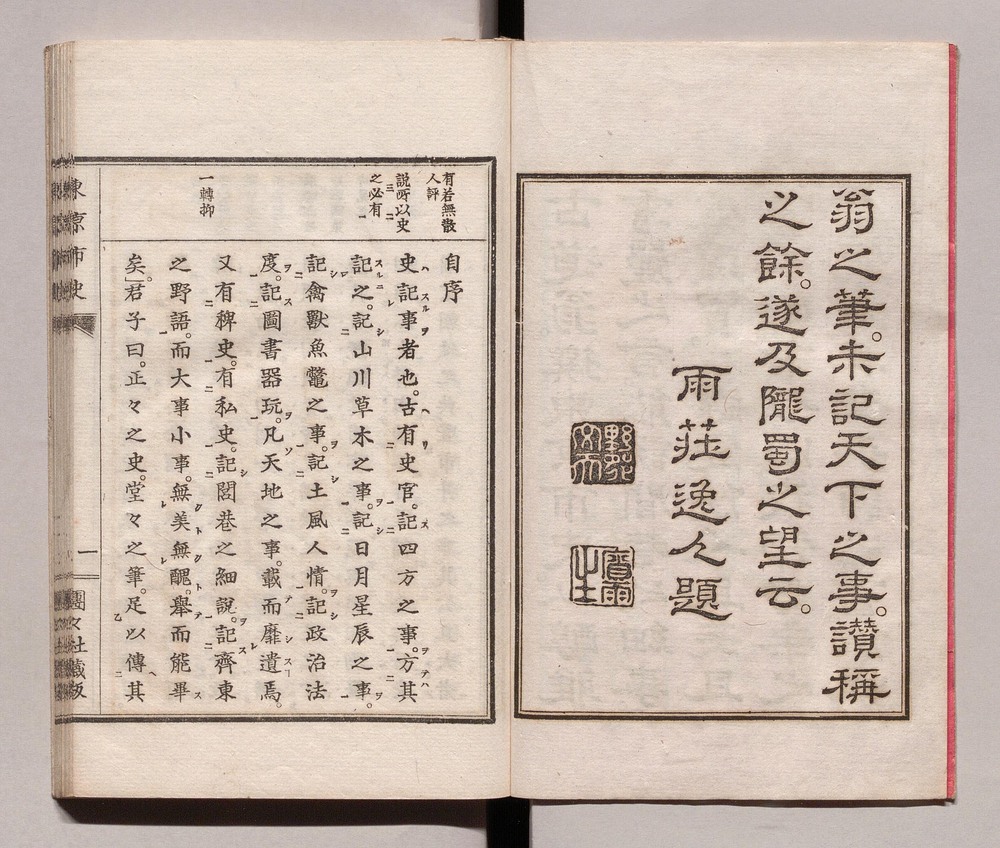 翁之筆。未記天下之事。讃稱
之餘。遂及隴蜀之望云。
雨莊逸人題
有若無散
人評
說所以史
之必有
一轉抑
自序
史記事者也。古有史官。記四方之事。方其
記之。記山川草木之事。記日月星辰之事。
記禽獸魚鼈之事。記土風人情。記政治法
度。記圖書器玩。凡天地之事。載而靡遺焉。
又有稗史。有私史。記閭巷之細說。記齊東
之野語。而大事小事。無美無醜。舉而能畢
矣。君子曰。正々之史。堂々之筆。足以傳其
東京市史
一
團々社藏版